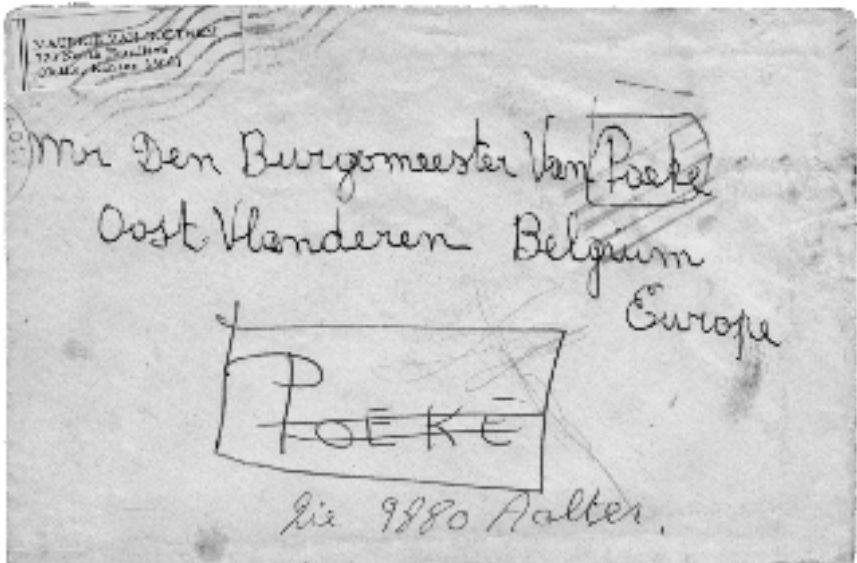 Mr Den Burgomeester Van Poeke
Oost Vlanderen Belgium
Europe
POEKE
Zie 9880 Aalter.